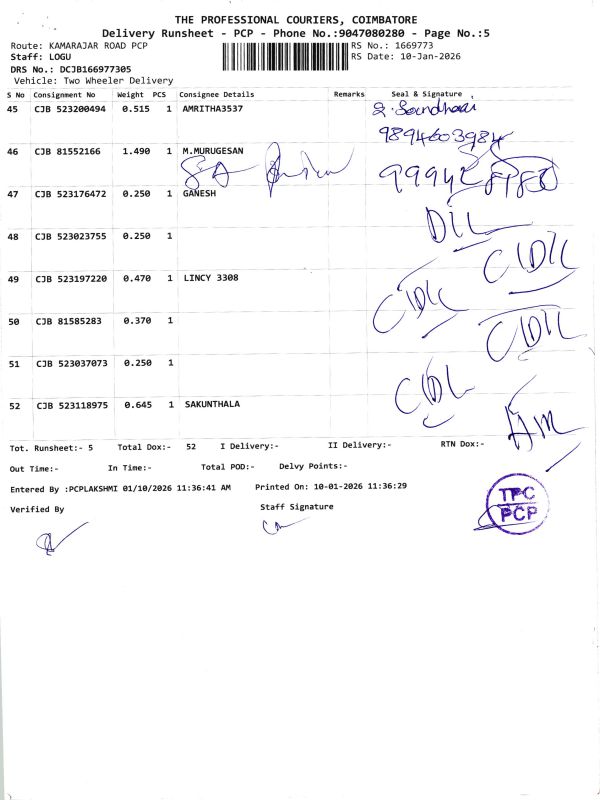 THE PROFESSIONAL COURIERS, COIMBATORE
Delivery Runsheet - PCP - Phone No.:9047080280 - Page No.:5
Route: KAMARAJAR ROAD PCP RS No.: 1669773
Staff: LOGU RS Date: 10-Jan-2026
DRS No.: DCJB166977305
Vehicle: Two Wheeler Delivery
S No Consignment No Weight PCS Consignee Details Remarks Seal & Signature
45 CJB 523200494 0.515 1 AMRITHA3537
9894603984
46 CJB 81552166 1.490 1 M.MURUGESAN
47 CJB 523176472 0.250 1 GANESH
48 CJB 523023755 0.250 1
49 CJB 523197220 0.470 1 LINCY 3308
50 CJB 81585283 0.370 1
51 CJB 523037073 0.250 1
52 CJB 523118975 0.645 1 SAKUNTHALA
Tot. Runsheet:- 5 Total Dox:- 52 I Delivery:- II Delivery:- RTN Dox:-
Out Time:- In Time:- Total POD:- Delvy Points:-
Entered By :PCPLAKSHMI 01/10/2026 11:36:41 AM Printed On: 10-01-2026 11:36:29
Verified By Staff Signature
TPC
PCP